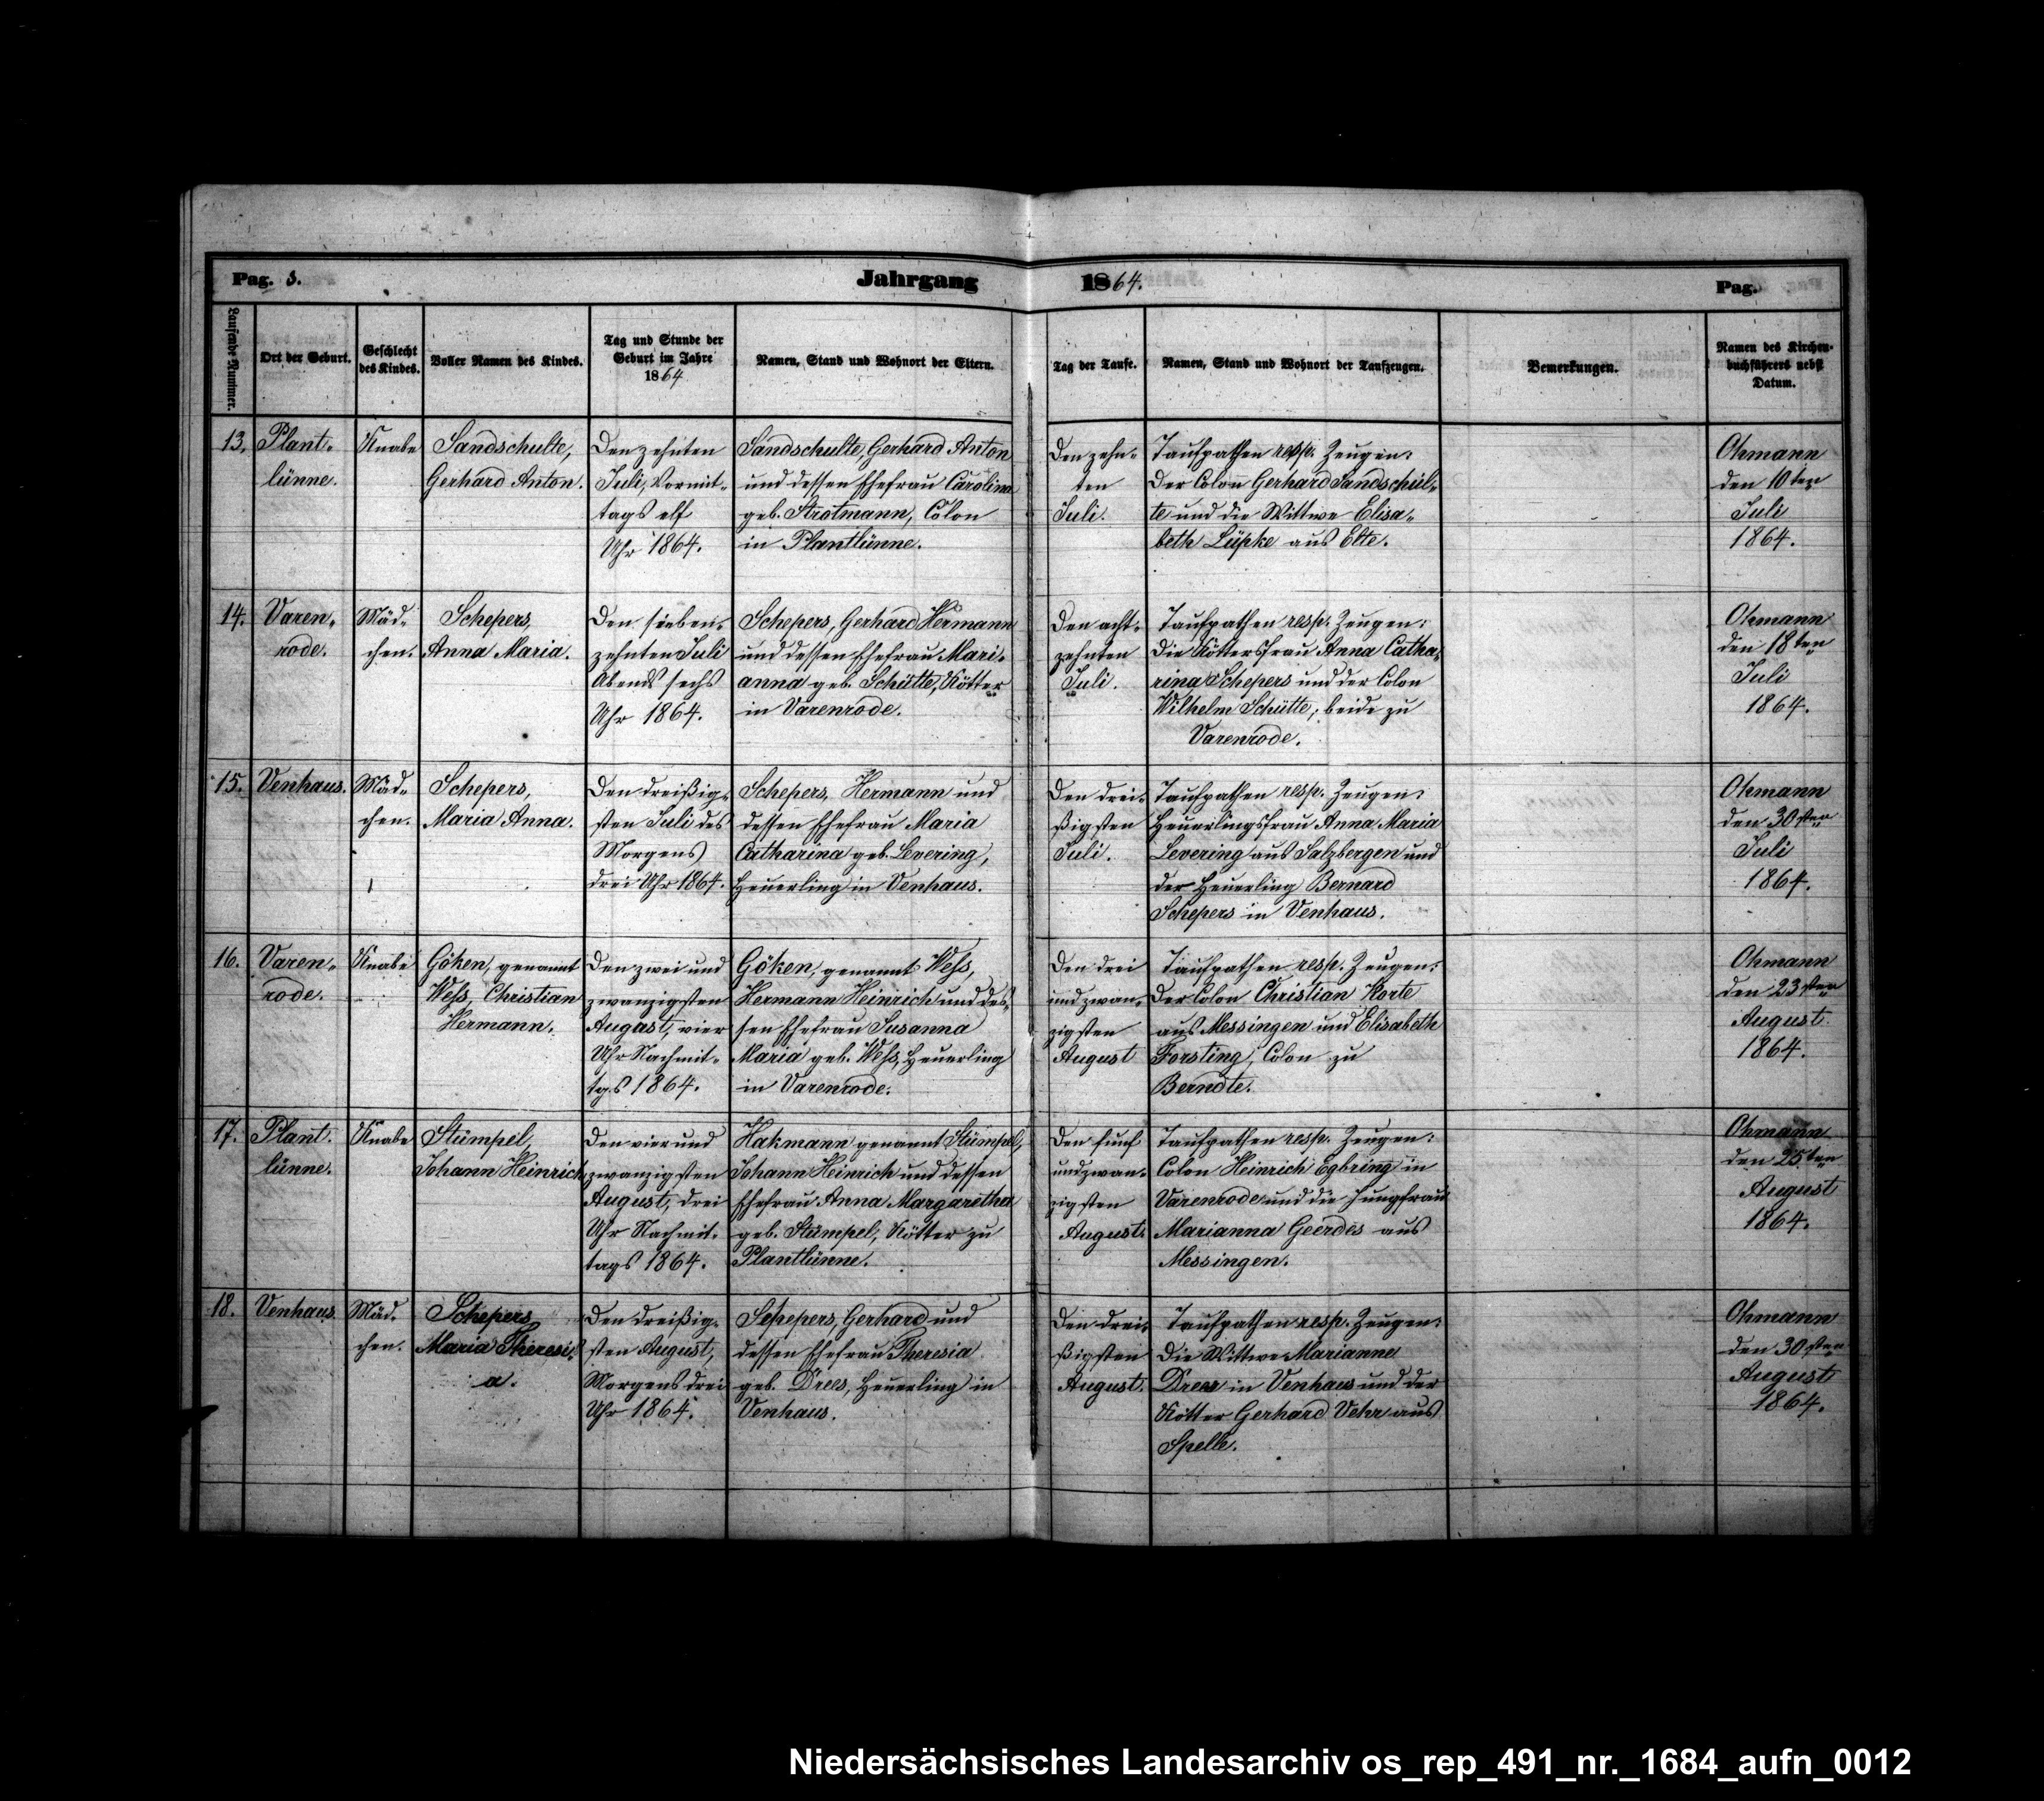 Pag. 3.
Jahrgang 1864.
Pag.
Laufende Nummer.
Ort der Geburt.
Geschlecht
des Kindes.
Voller Namen des Kindes.
Tag und Stunde der
Geburt im Jahre
1864
Namen, Stand und Wohnort der Eltern.
Tag der Taufe.
Namen, Stand und Wohnort der Taufzeugen.
Bemerkungen.
Namen des Kirchen-
buchführers nebst
Datum.
13.
Plant-
lünne.
Knabe
Sandschulte,
Gerhard Anton.
Den zehnten
Juli, Vormit-
tags elf
Uhr 1864.
Sandschulte, Gerhard Anton
und dessen Ehefrau Carolina
geb. Strotmann, Colon
in Plantlünne.
Den zehn-
ten
Juli.
Taufpathen resp. Zeugen:
Der Colon Gerhard Sandschul-
te und die Wittwe Elisa-
beth Lüpke aus Elte.
Ohmann
den 10ten
Juli
1864.
14.
Varen-
rode.
Mäd-
chen.
Schepers,
Anna Maria.
Den sieben-
zehnten Juli
Abends sechs
Uhr 1864.
Schepers, Gerhard Hermann
und dessen Ehefrau Mari-
anna geb. Schütte, Kötter
in Varenrode.
Den acht-
zehnten
Juli.
Taufpathen resp. Zeugen:
Die Köttersfrau Anna Catha-
rina Schepers und der Colon
Wilhelm Schütte, beide zu
Varenrode.
Ohmann
den 18ten
Juli
1864.
15.
Venhaus.
Mäd-
chen.
Schepers,
Maria Anna.
Den dreißig-
sten Juli des
Morgens
drei Uhr 1864.
Schepers, Hermann und
dessen Ehefrau Maria
Catharina geb. Levering,
Heuerling in Venhaus.
Den drei-
ßigsten
Juli.
Taufpathen resp. Zeugen:
Heuerlingsfrau Anna Maria
Levering aus Salzbergen und
der Heuerling Bernard
Schepers in Venhaus.
Ohmann
den 30sten
Juli
1864.
16.
Varen-
rode.
Knabe
Göken, genannt
Weß, Christian
Hermann.
Den zwei und
zwanzigsten
August, vier
Uhr Nachmit-
tgs 1864.
Göken, genannt Weß,
Hermann Heinrich und des-
sen Ehefrau Susanna
Maria geb. Weß, Heuerling
in Varenrode.
Den drei
und zwan-
zigsten
August
Taufpathen resp. Zeugen:
Der Colon Christian Korte
aus Messingen und Elisabeth
Forsting, Colon zu
Berndte.
Ohmann
den 23sten
August.
1864.
17.
Plant-
lünne.
Knabe
Stümpel,
Johann Heinrich
Den vier und
zwanzigsten
August, drei
Uhr Nachmit-
tags 1864.
Hakmann genannt Stümpel,
Johann Heinrich und dessen
Ehefrau Anna Margaretha
geb. Stümpel, Kötter zu
Plantlünne.
Den fünf
und zwan-
zigsten
August.
Taufpathen resp. Zeugen:
Colon Heinrich Egbring in
Varenrode und die Jungfrau
Marianna Geerdes aus
Messingen.
Ohmann
den 25ten
August
1864.
18.
Venhaus.
Mäd-
chen.
Schepers
Maria Theresi-
a.
Den dreißig-
sten August,
Morgens drei
Uhr 1864.
Schepers, Gerhard und
dessen Ehefrau Theresia
geb. Drees, Heuerling in
Venhaus.
Den drei-
ßigsten
August.
Taufpathen resp. Zeugen:
Die Wittwe Marianne
Drees in Venhaus und der
Kötter Gerhard Vehr aus
Spelle.
Ohmann
den 30sten
August
1864.
Niedersächsisches Landesarchiv os_rep_491_nr._1684_aufn_0012